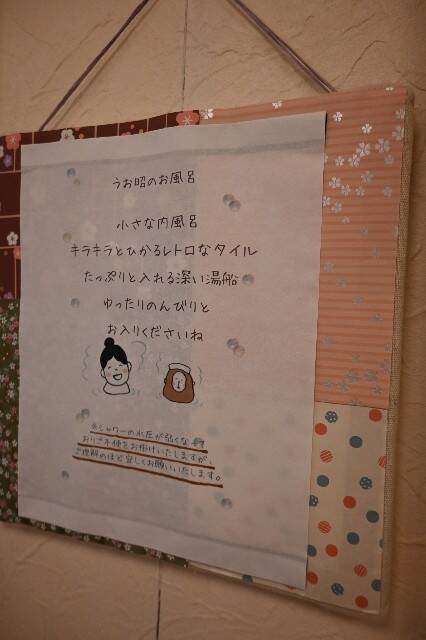 うお昭のお風呂
小さな内風呂
キラキラとひかるレトロなタイル
たっぷりと入れる深い湯船
ゆったりのんびりと
お入りくださいね
※シャワーの水圧が弱くなって
おりご不便をお掛けいたしますが、
ご理解のほど宜しくお願いいたします。